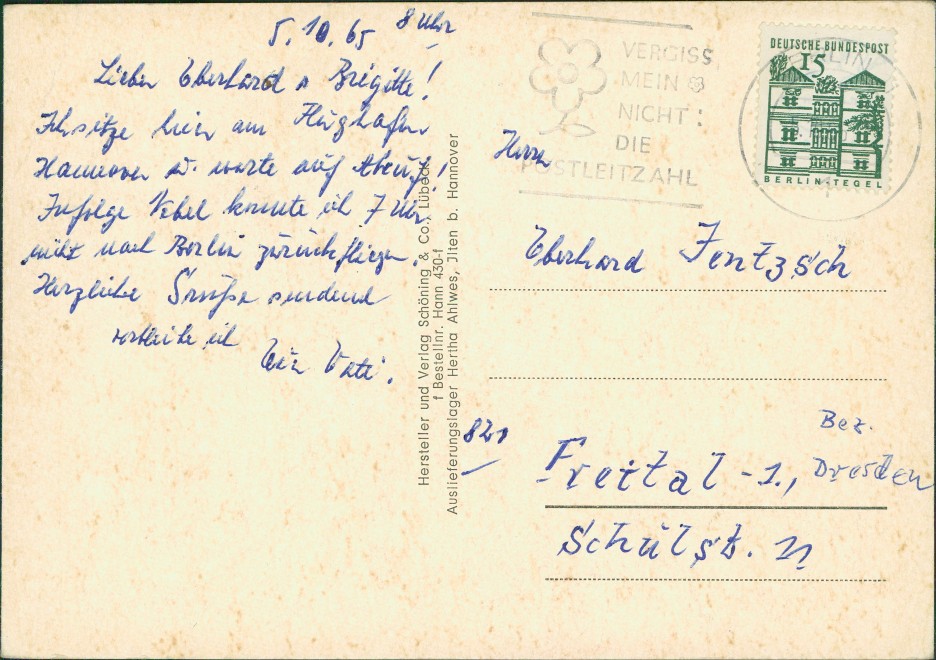 5.10.65 8 Uhr
Lieber Eberhard u Brigitte!
Ich sitze hier am Flughafen
Hannover u. warte auf Abruf!
Infolge Nebel konnte ich 7 Uhr
nicht nach Berlin zurückfliegen.
Herzliche Grüße sendend
verbleibe ich
Euer Vati.
Hersteller und Verlag Schöning & Co., Lübeck
f Bestellnr. Hann 430-f
Auslieferungslager Hertha Ahlwes, Jlten b. Hannover
VERGISS
MEIN
NICHT:
DIE
POSTLEITZAHL
BERLIN
DEUTSCHE BUNDESPOST
15
BERLIN-TEGEL
Herrn
Eberhard Jentzsch
821
Freital-1., Bez. Dresden
Schulst. 11